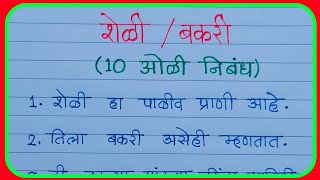 शेळी / बकरी
(10 ओळी निबंध)
1. शेळी हा पाळीव प्राणी आहे.
2. तिला बकरी असेही म्हणतात.